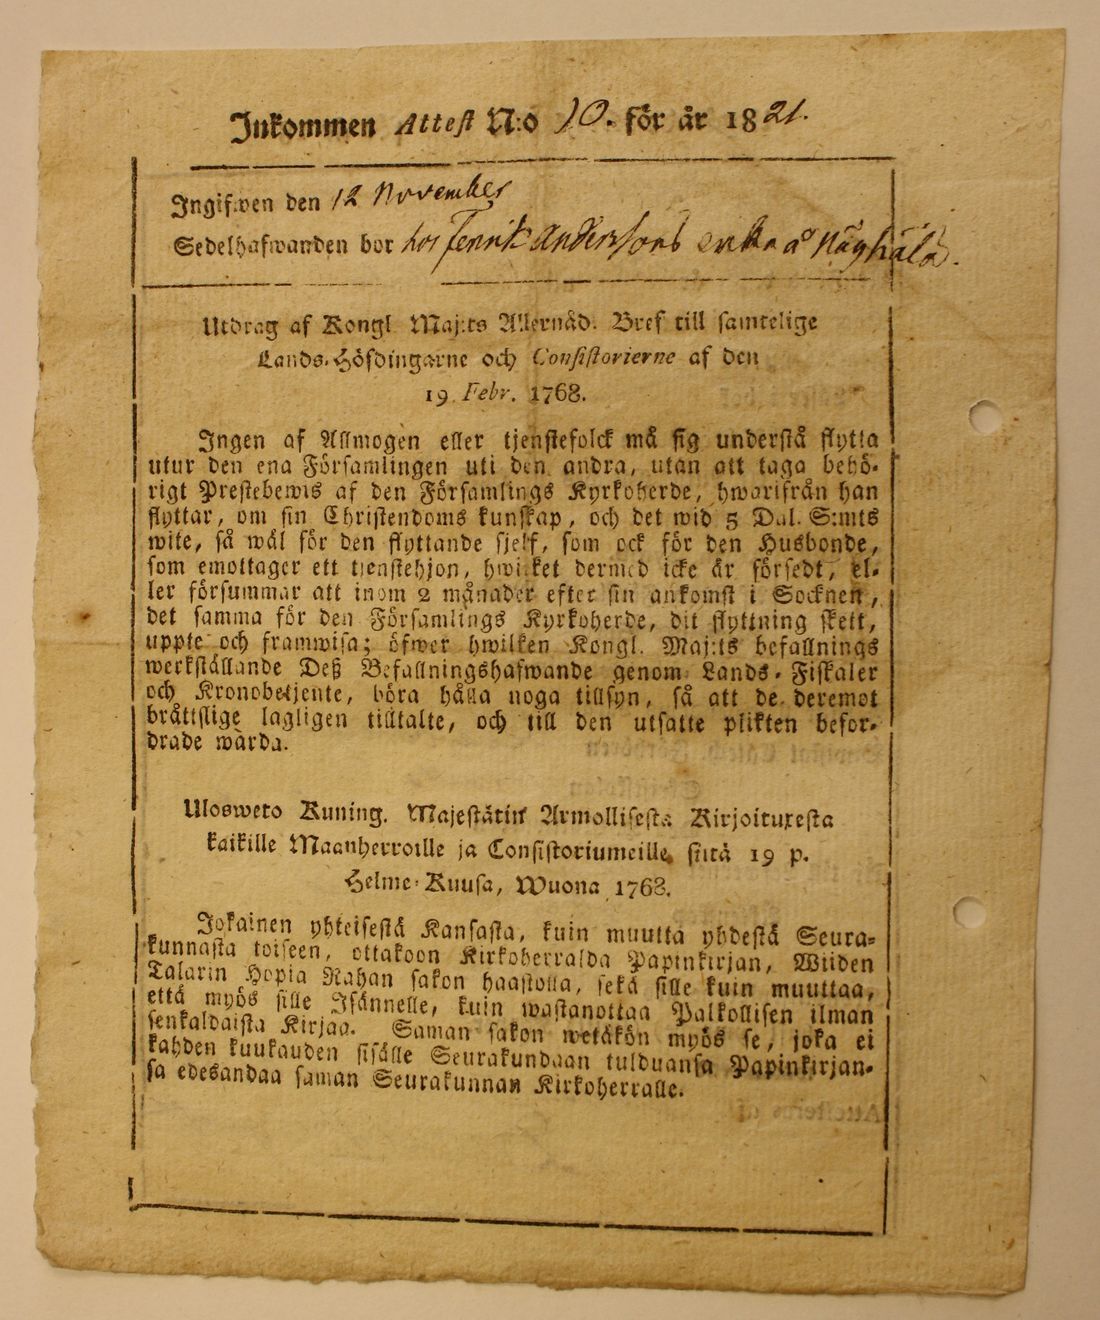 Inkommen Attest N:o 10. för år 1821.
Ingifwen den 12 November
Sedelhafwanden bor hos Fenrik Anderssons enka å
Utdrag af Kongl. Maj:ts Allernåd. Bref till samtelige
Lands-Höfdingarne och Consistorierne af den
19 Febr. 1768.
Ingen af Allmogen eller tjenstefolck må sig understå flytta
utur den ena Församlingen uti den andra, utan att taga behö-
rigt Prestebewis af den Församlings Kyrkoherde, hwarifrån han
flyttar, om sin Christendoms kunskap, och det wid 5 Dal. S:mts
wite, så wäl för den flyttande sjelf, som ock för den Husbonde,
som emottager ett tjenstehjon, hwilket dermed icke är försedt, el-
ler försummar att inom 2 månader efter sin ankomst i Socknen,
det samma för den Församlings Kyrkoherde, dit flyttning skett,
uppte och framwisa; öfwer hwilken Kongl. Maj:ts befallnings
werkställande Deß Befallningshafwande genom Lands-Fiskaler
och Kronobetjente, böra hålla noga tillsyn, så att de deremot
bråttslige lagligen tilltalte, och till den utsatte plikten befor-
drade warda.
Ulosweto Kuning. Majestätin Armollisesta Kirjoituxesta
kaikille Maanherroille ja Consistoriumeille, siitä 19 p.
Helme-Kuusa, Wuona 1768.
Jokainen yhteisestä Kansasta, kuin muutta yhdestä Seura-
kunnasta toiseen, ottakoon Kirkoherralda Papinkirjan, Wiiden
Talarin Hopia Rahan sakon haastolla, sekä sille kuin muuttaa,
että myös sille Isännelle, kuin wastanottaa Palkollisen ilman
senkaldaista Kirjaa. Saman sakon wetäkön myös se, joka ei
kahden kuukauden sisälle Seurakundaan tulduansa Papinkirjan-
sa edesandaa saman Seurakunnan Kirkoherralle.